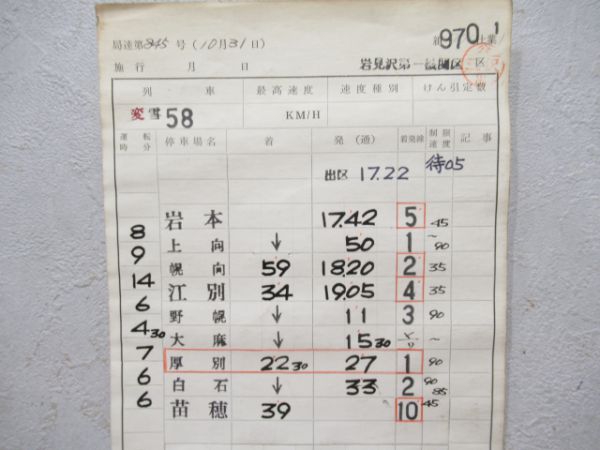 局達第345号(10月31日)
970
施行 月 日
岩見沢第一機関区
列 車 最高速度 速度種別 けん引定数
変雪58 KM/H
運転時分 停車場名 着 発(通) 着発線 制限速度 記事
出区 17.22 待05
岩本 17.42 5 45
8 上向 ↓ 50 1 ~90
9 幌向 59 18.20 2 35
14 江別 34 19.05 4 35
6 野幌 ↓ 11 3 90
4 30 大麻 ↓ 15 30 ~
7 厚別 22 30 27 1 90
6 白石 ↓ 33 2 90 85
6 苗穂 39 10 45